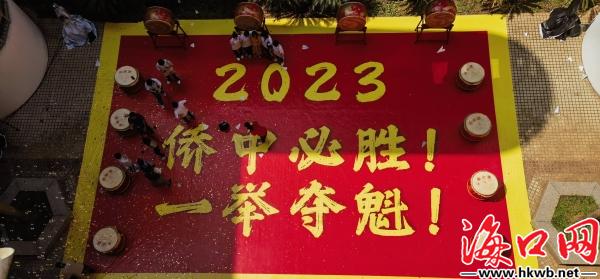 2023
侨中必胜！
一举夺魁！
海口网
www.hkwb.net